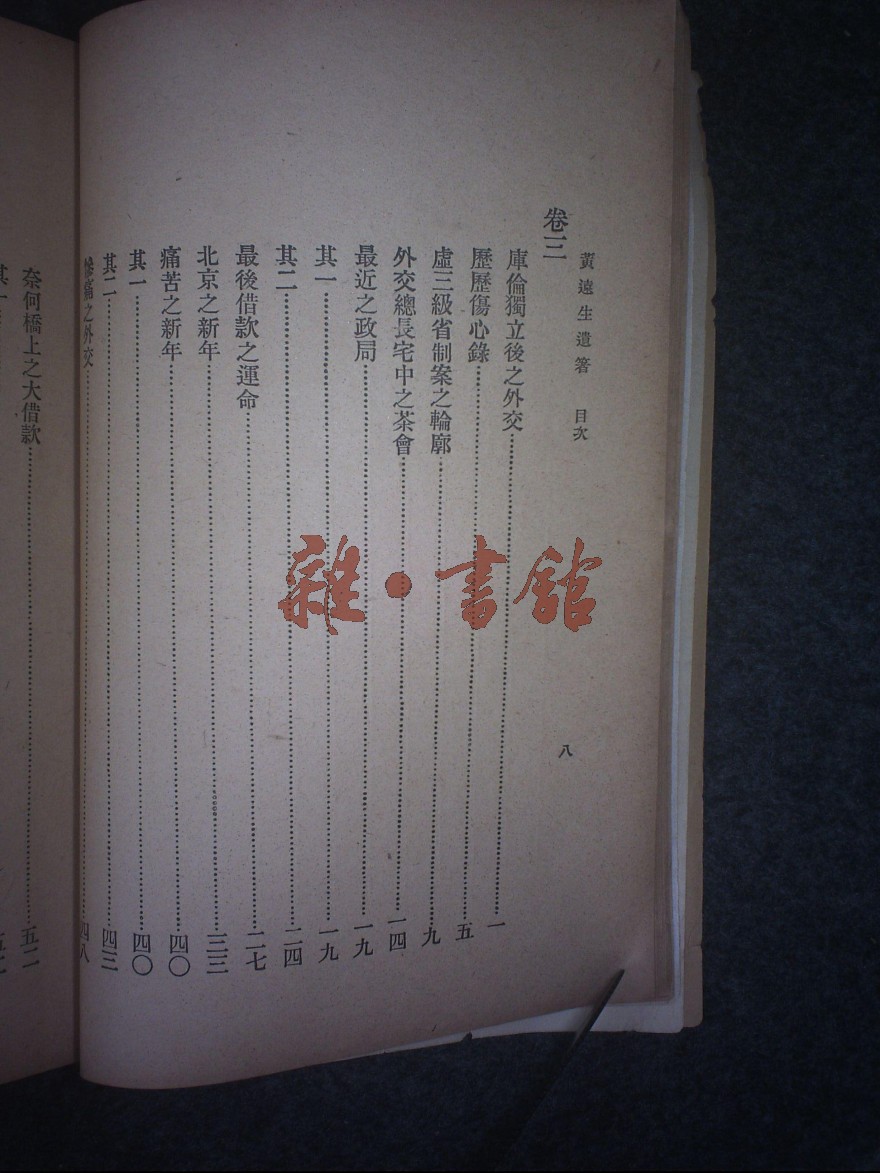 黃遠生遺箸 目次 八
卷三
庫倫獨立後之外交 一
歷歷傷心錄 五
虛三級省制案之輪廓 九
外交總長宅中之茶會 一四
最近之政局 一九
其一 一九
其二 二四
最後借款之運命 二七
北京之新年 三三
痛苦之新年 四〇
其一 四〇
其二 四三
慘痛之外交 四八
奈何橋上之大借款 五二
其一
雜·書館